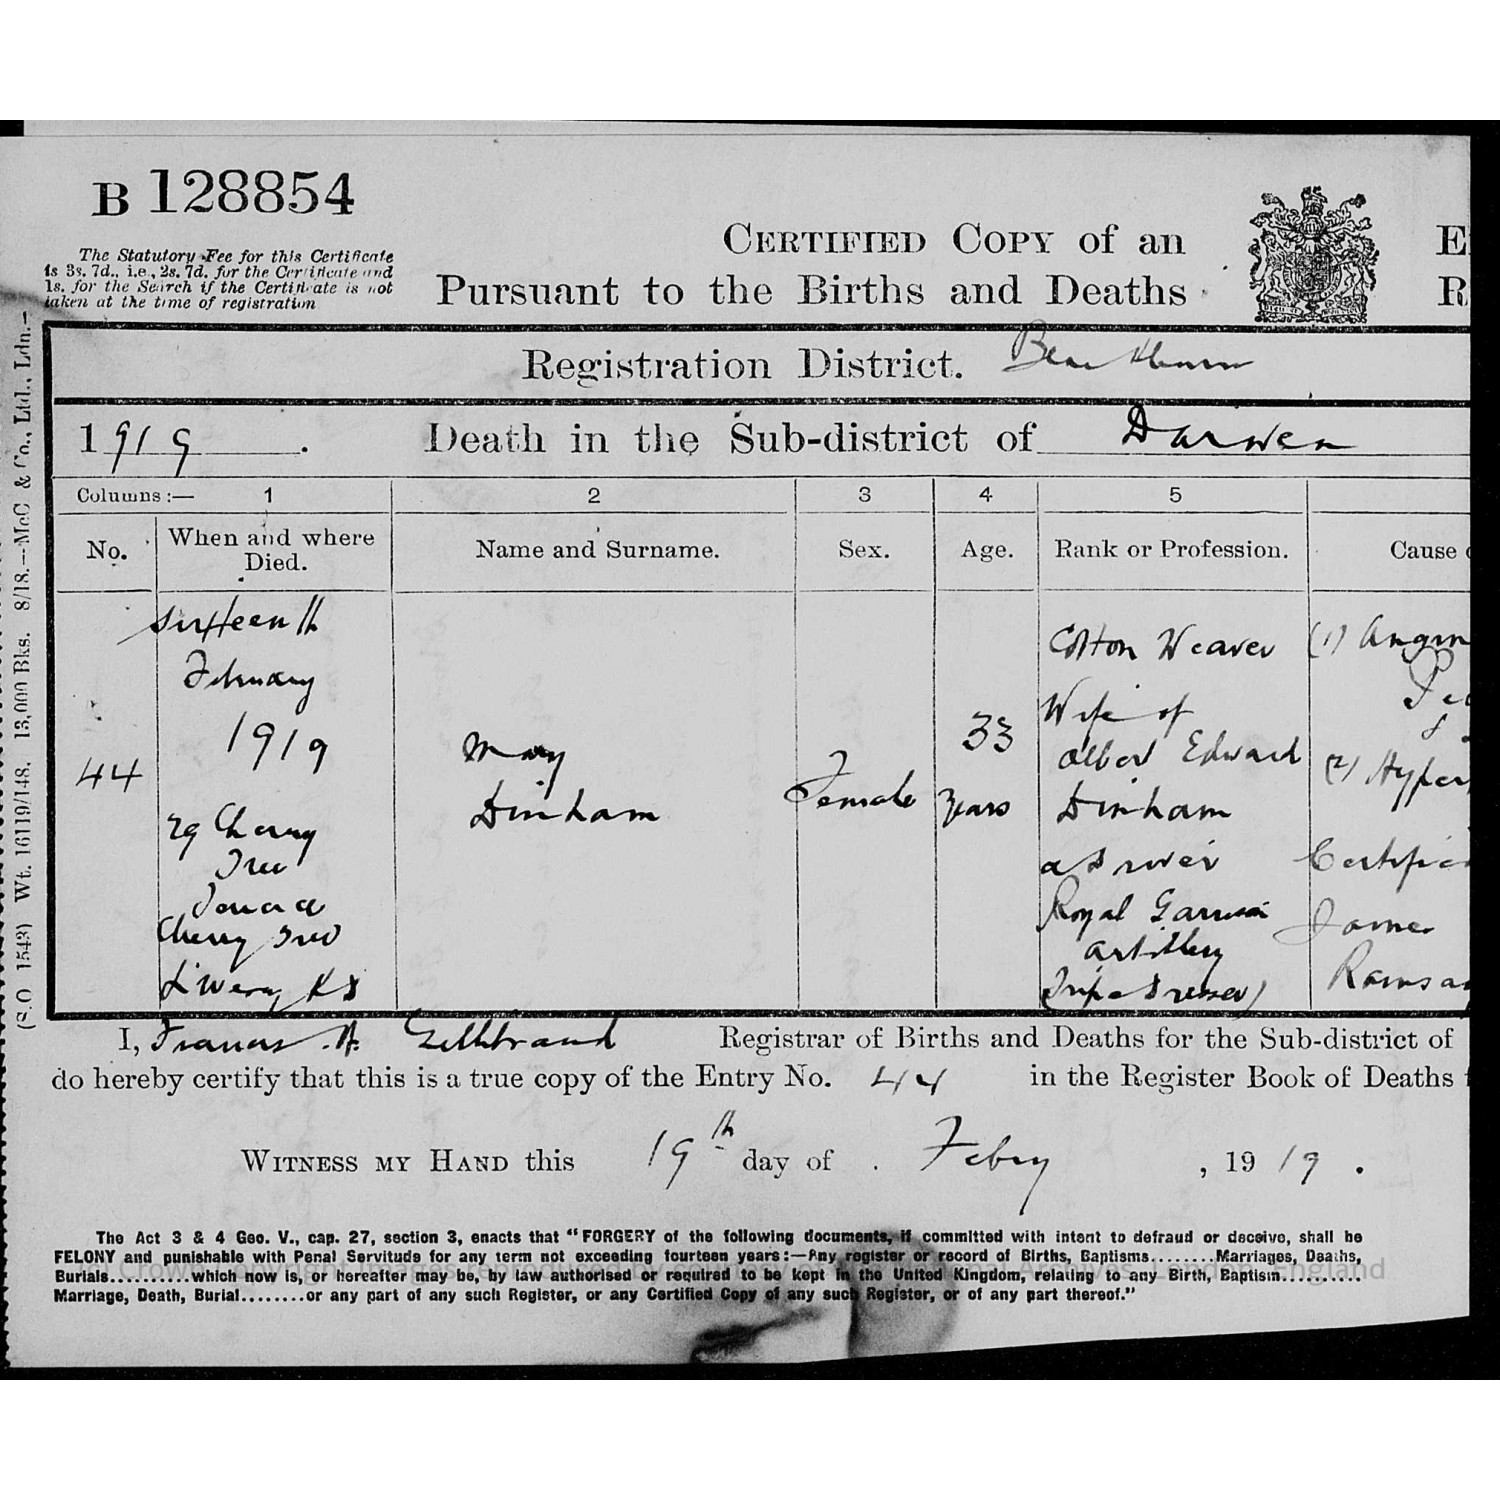 B 128854
The Statutory Fee for this Certificate
is 3s. 7d., i.e., 2s. 7d. for the Certificate and
1s. for the Search if the Certificate is not
taken at the time of registration
CERTIFIED COPY of an
Pursuant to the Births and Deaths
E
R
Registration District. Blackburn
1919. Death in the Sub-district of Darwen
Columns:— 1 2 3 4 5
No. When and where Died. Name and Surname. Sex. Age. Rank or Profession. Cause
44
Sixteenth
February
1919
29 Cherry
Tree
Terrace
Cherry Tree
Livesey
Mary
Dinham
Female
33
years
Cotton Weaver
Wife of
Albert Edward
Dinham
a Driver
Royal Garrison
Artillery
(Tripe Dresser)
(1)
(2) Hyper
Certifie
James
Ramsay
I, Francis A. Gillibrand Registrar of Births and Deaths for the Sub-district of
do hereby certify that this is a true copy of the Entry No. 44 in the Register Book of Deaths
WITNESS MY HAND this 19th day of Febry, 1919.
The Act 3 & 4 Geo. V., cap. 27, section 3, enacts that "FORGERY of the following documents, if committed with intent to defraud or deceive, shall be
FELONY and punishable with Penal Servitude for any term not exceeding fourteen years:—Any register or record of Births, Baptisms........Marriages, Deaths,
Burials..........which now is, or hereafter may be, by law authorised or required to be kept in the United Kingdom, relating to any Birth, Baptism..........
Marriage, Death, Burial........or any part of any such Register, or any Certified Copy of any such Register, or of any part thereof."
(S.O 1543) Wt. 16119/148. 13,000 Bks. 8/18.—McC & Co., Ltd., Ldn.—
© Crown copyright images reproduced by courtesy of The National Archives, London, England